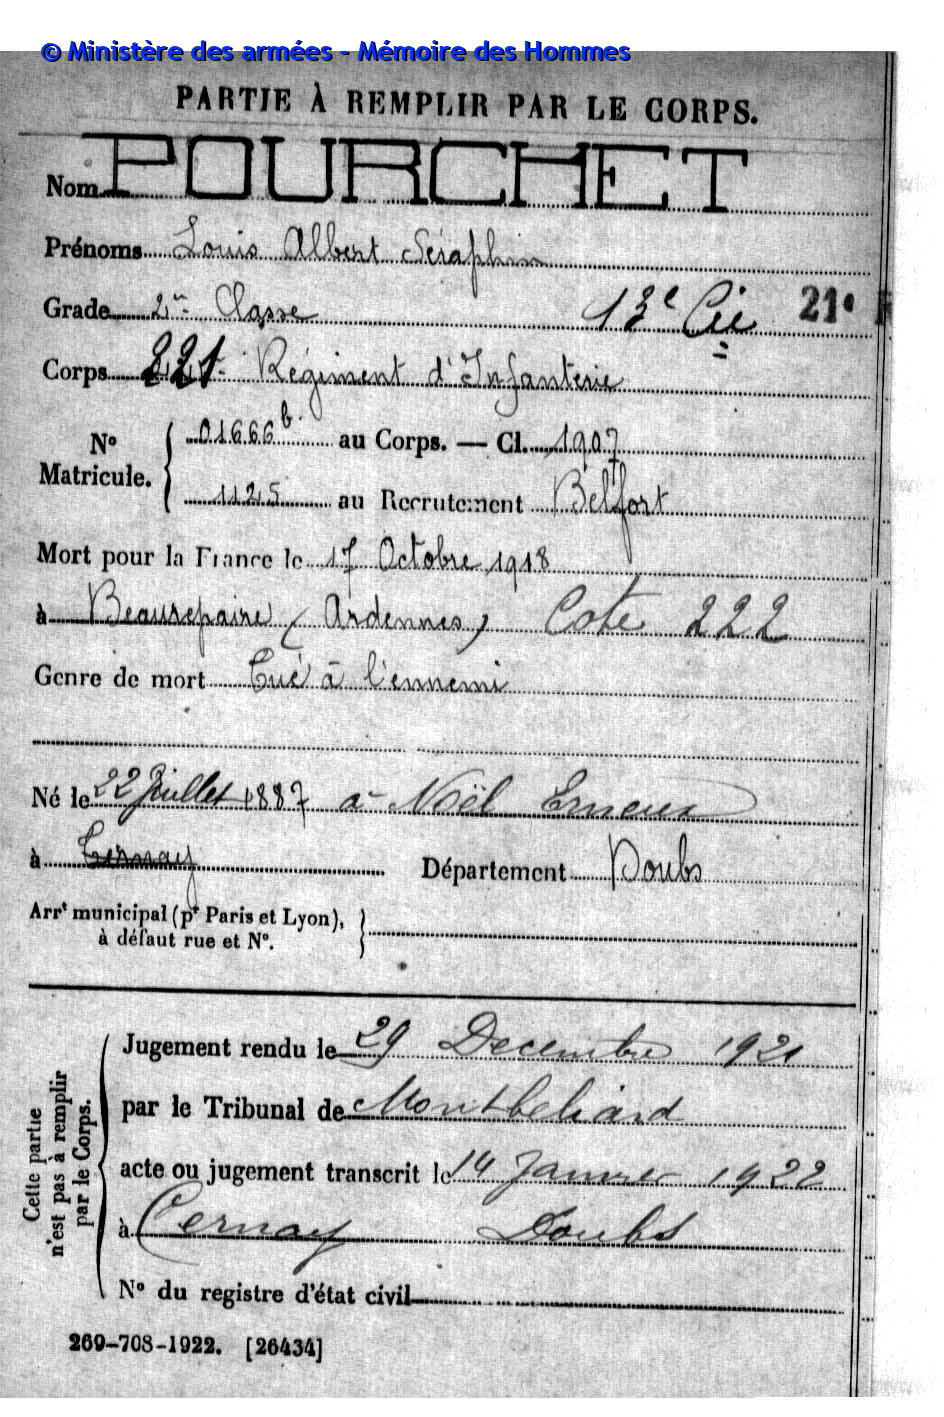 © Ministère des armées - Mémoire des Hommes
PARTIE À REMPLIR PAR LE CORPS.
Nom POURCHET
Prénoms Louis Albert Séraphin
Grade 2me Classe 13e Cie 21e
Corps 221 Régiment d'Infanterie
No Matricule. 01666 b. au Corps. — Cl. 1907
1125 au Recrutement Belfort
Mort pour la France le 17 Octobre 1918
à Beaurepaire (Ardennes) Cote 222
Genre de mort Tué à l'ennemi
Né le 22 Juillet 1887 à Noël Cerneux
à Cernay Département Doubs
Arrt municipal (pr Paris et Lyon),
à défaut rue et No.
Cette partie n'est pas à remplir par le Corps.
Jugement rendu le 29 Decembre 1921
par le Tribunal de Montbeliard
acte ou jugement transcrit le 14 Janvier 1922
à Cernay Doubs
No du registre d'état civil
269-708-1922. [26434]